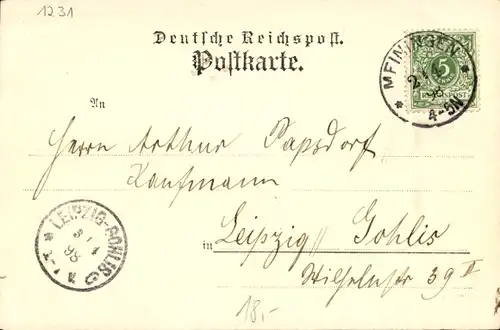 1231
Deutsche Reichspost.
Postkarte.
MEININGEN
5
4-5N
An
Herrn Arthur Papsdorf
Kaufmann
LEIPZIG-GOHLIS
98
in Leipzig // Gohlis
Wilhelmstr 39 II
18,-